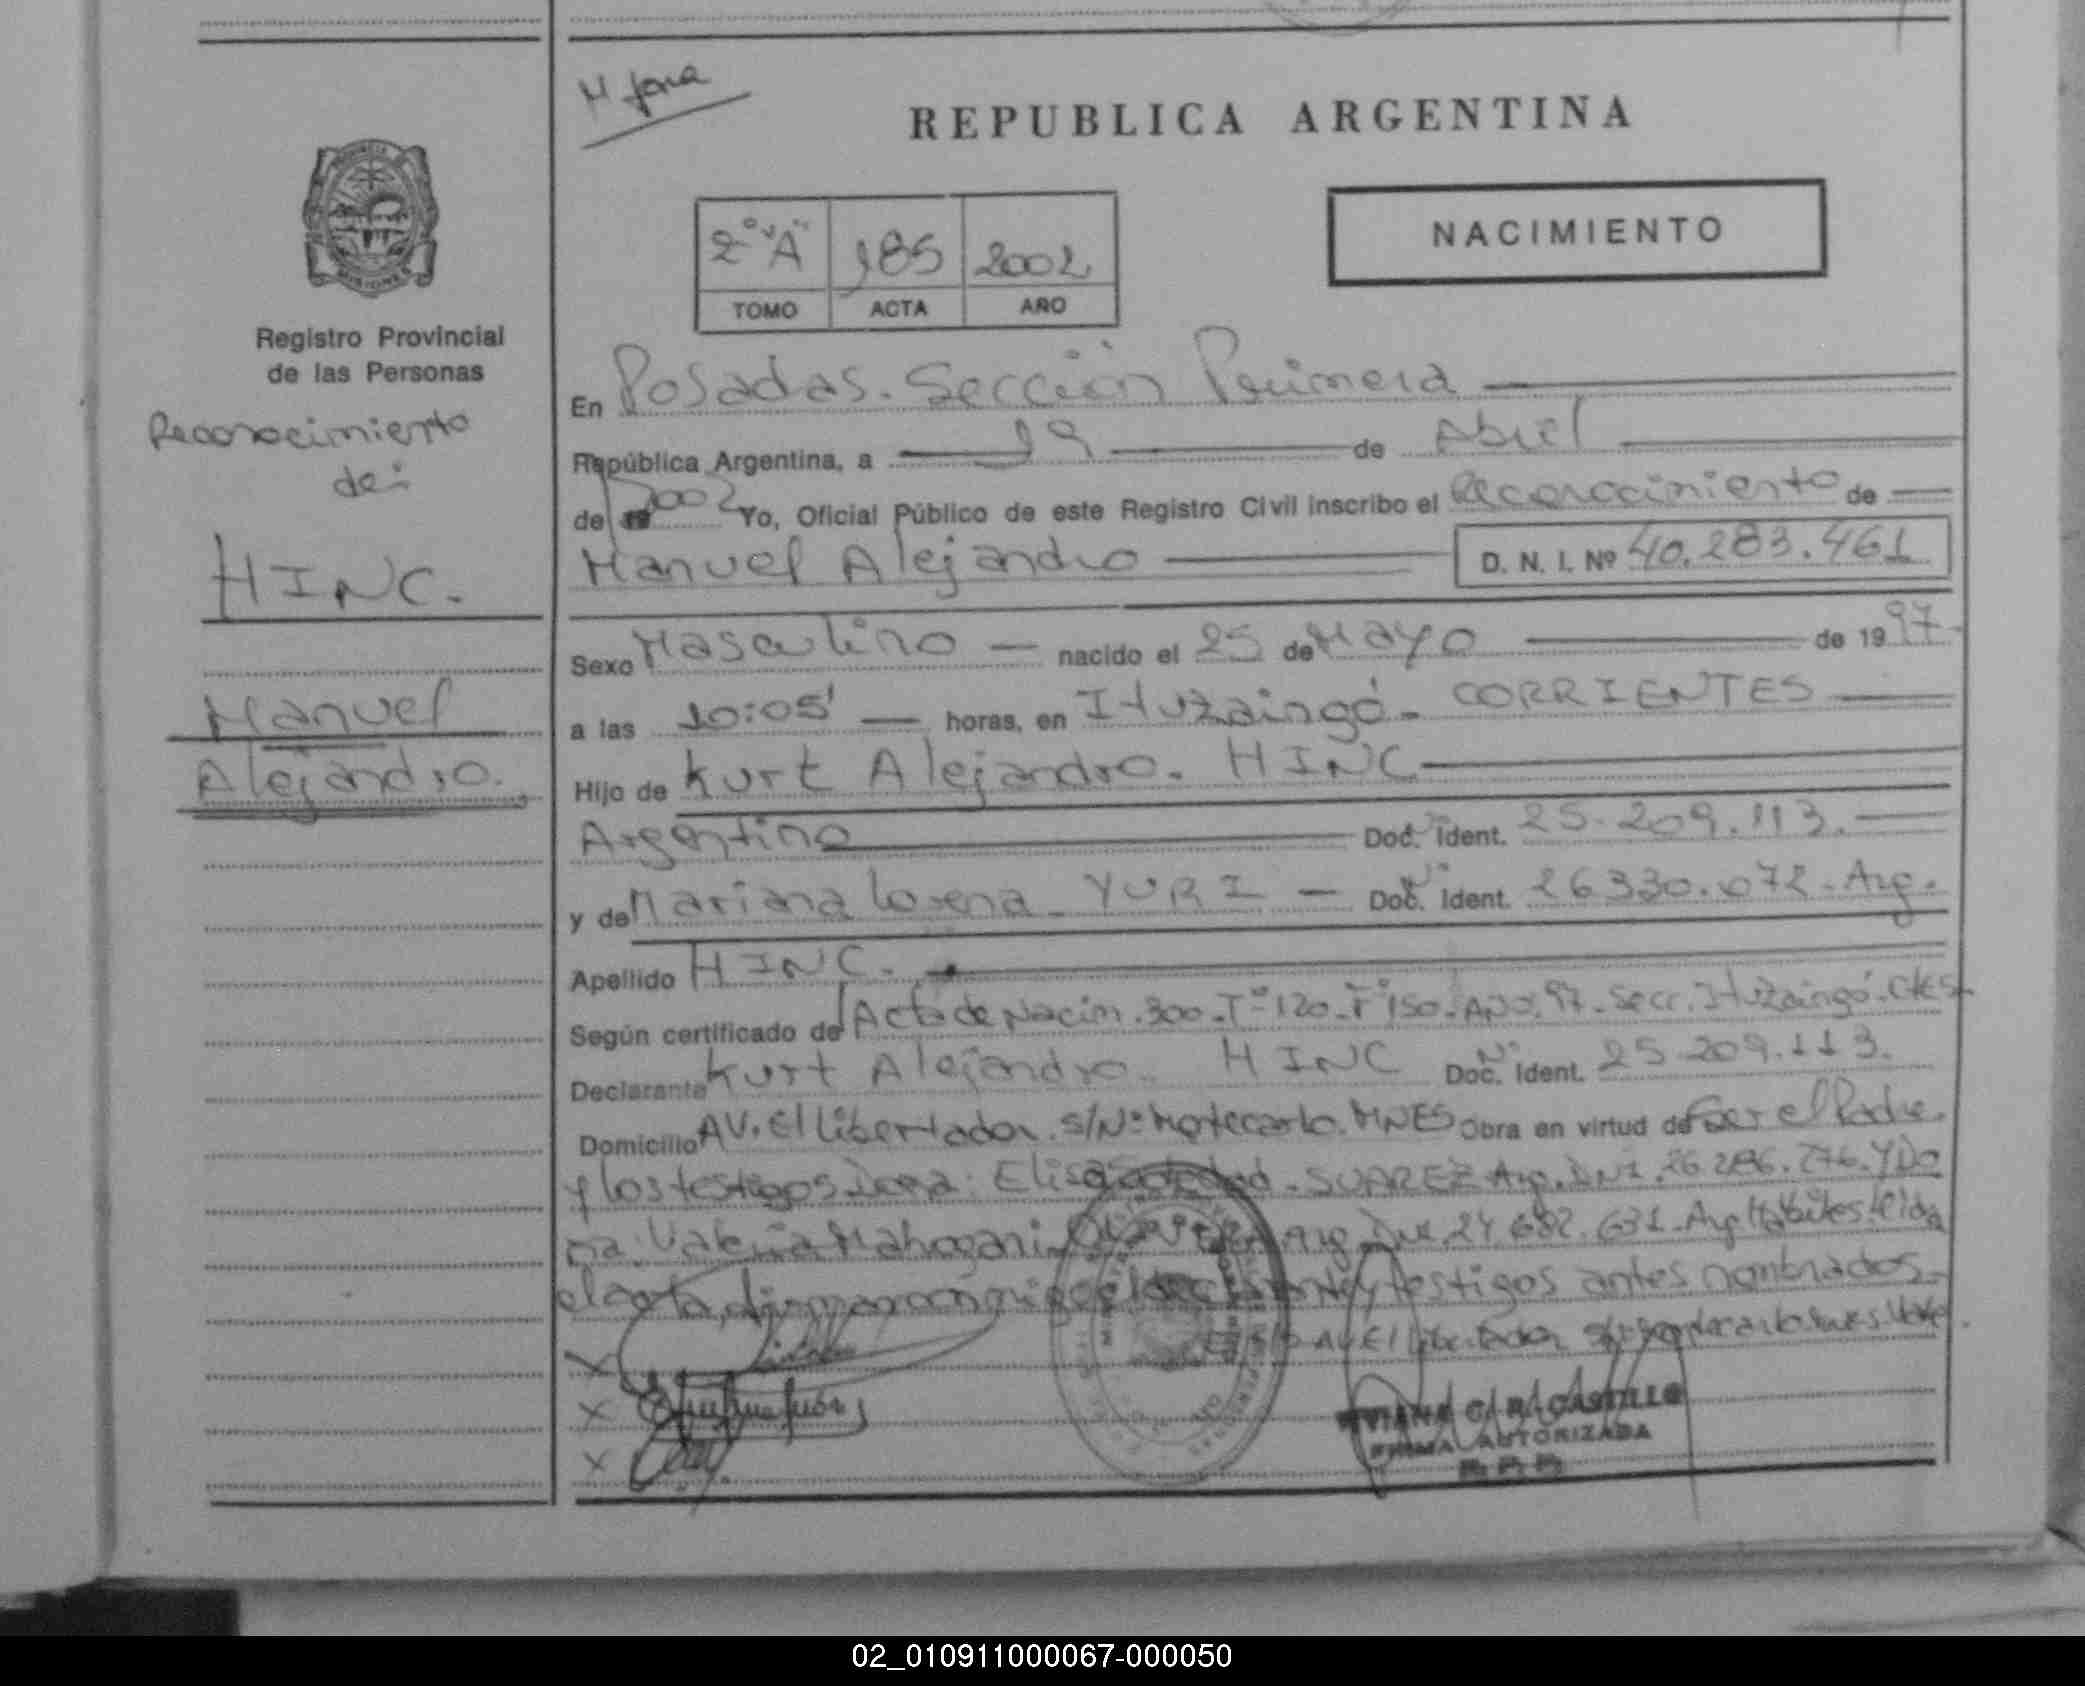 REPUBLICA ARGENTINA
2° "A" 185 2002
TOMO ACTA AÑO
NACIMIENTO
Registro Provincial
de las Personas
Reconocimiento
de:
HINC.
Manuel
Alejandro.
En Posadas. Sección Primera
República Argentina, a 19 de Abril
de 2002 Yo, Oficial Público de este Registro Civil inscribo el Reconocimiento de
Manuel Alejandro D. N. I. Nº 40.283.461
Sexo Masculino nacido el 25 de Mayo de 1997
a las 10:05' horas, en Ituzaingó - CORRIENTES
Hijo de Kurt Alejandro. HINC
Argentino Doc. Ident. 25.209.113.
y de Mariana Lorena YURI Doc. Ident. 26330.072 - Arg.
Apellido HINC.
Según certificado de Acta de Nacim. 300 - T° 120 - F° 150 - Año 97 - Secc. Ituzaingó - Ctes
Declarante Kurt Alejandro. HINC Doc. Ident. 25.209.113.
Domicilio AV. El Libertador. s/Nº Montecarlo. MNES Obra en virtud de Ser el Padre
y los testigos Doña: Elisa SUAREZ Arg. DNI. 26.286.776. Y Do
ña: Valeria Mahogani Arg. DNI. 24.682.631 - Arg Hábiles. leída
el acta, firman conmigo el declarante y testigos antes nombrados
C. R. CASTILLO
FIRMA AUTORIZADA
02_010911000067-000050